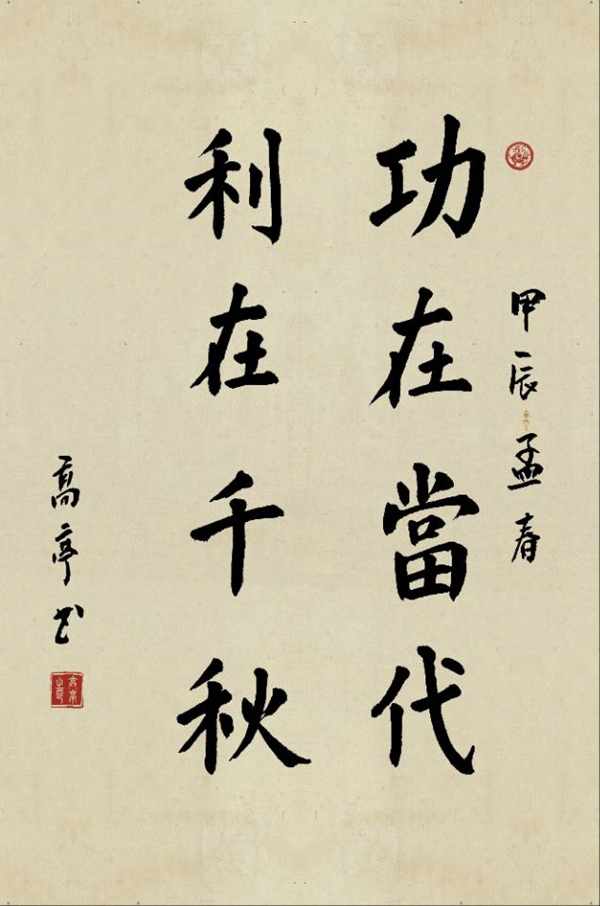 甲辰孟春
功在當代
利在千秋
高亭书